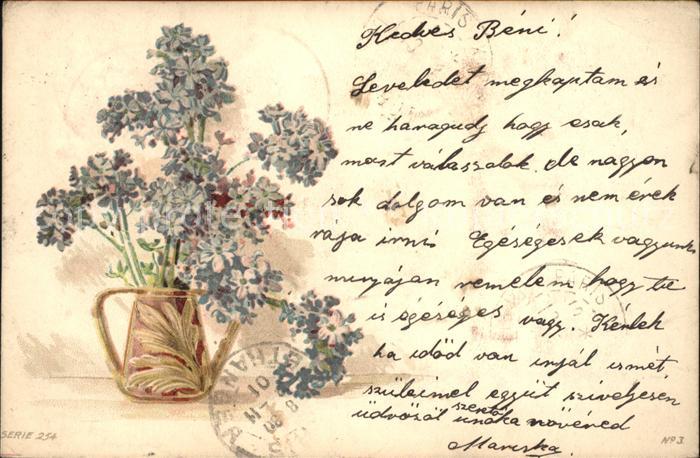 Kedves Béni!
Leveledet megkaptam és
ne haragudj hogy csak,
most válaszolok. de nagyon
sok dolgom van és nem érek
raja irni. Egéségesek vagyunk
mnyájan remelem hogy te
is egéséges vagy. Kérlek
ha időd van irjál ismét
szüleimel együt sziveljesén
üdvözöl szerető unoka növéred
Mariska.
PARIS
PARIS
ETRANGER
SERIE 254
No 3.